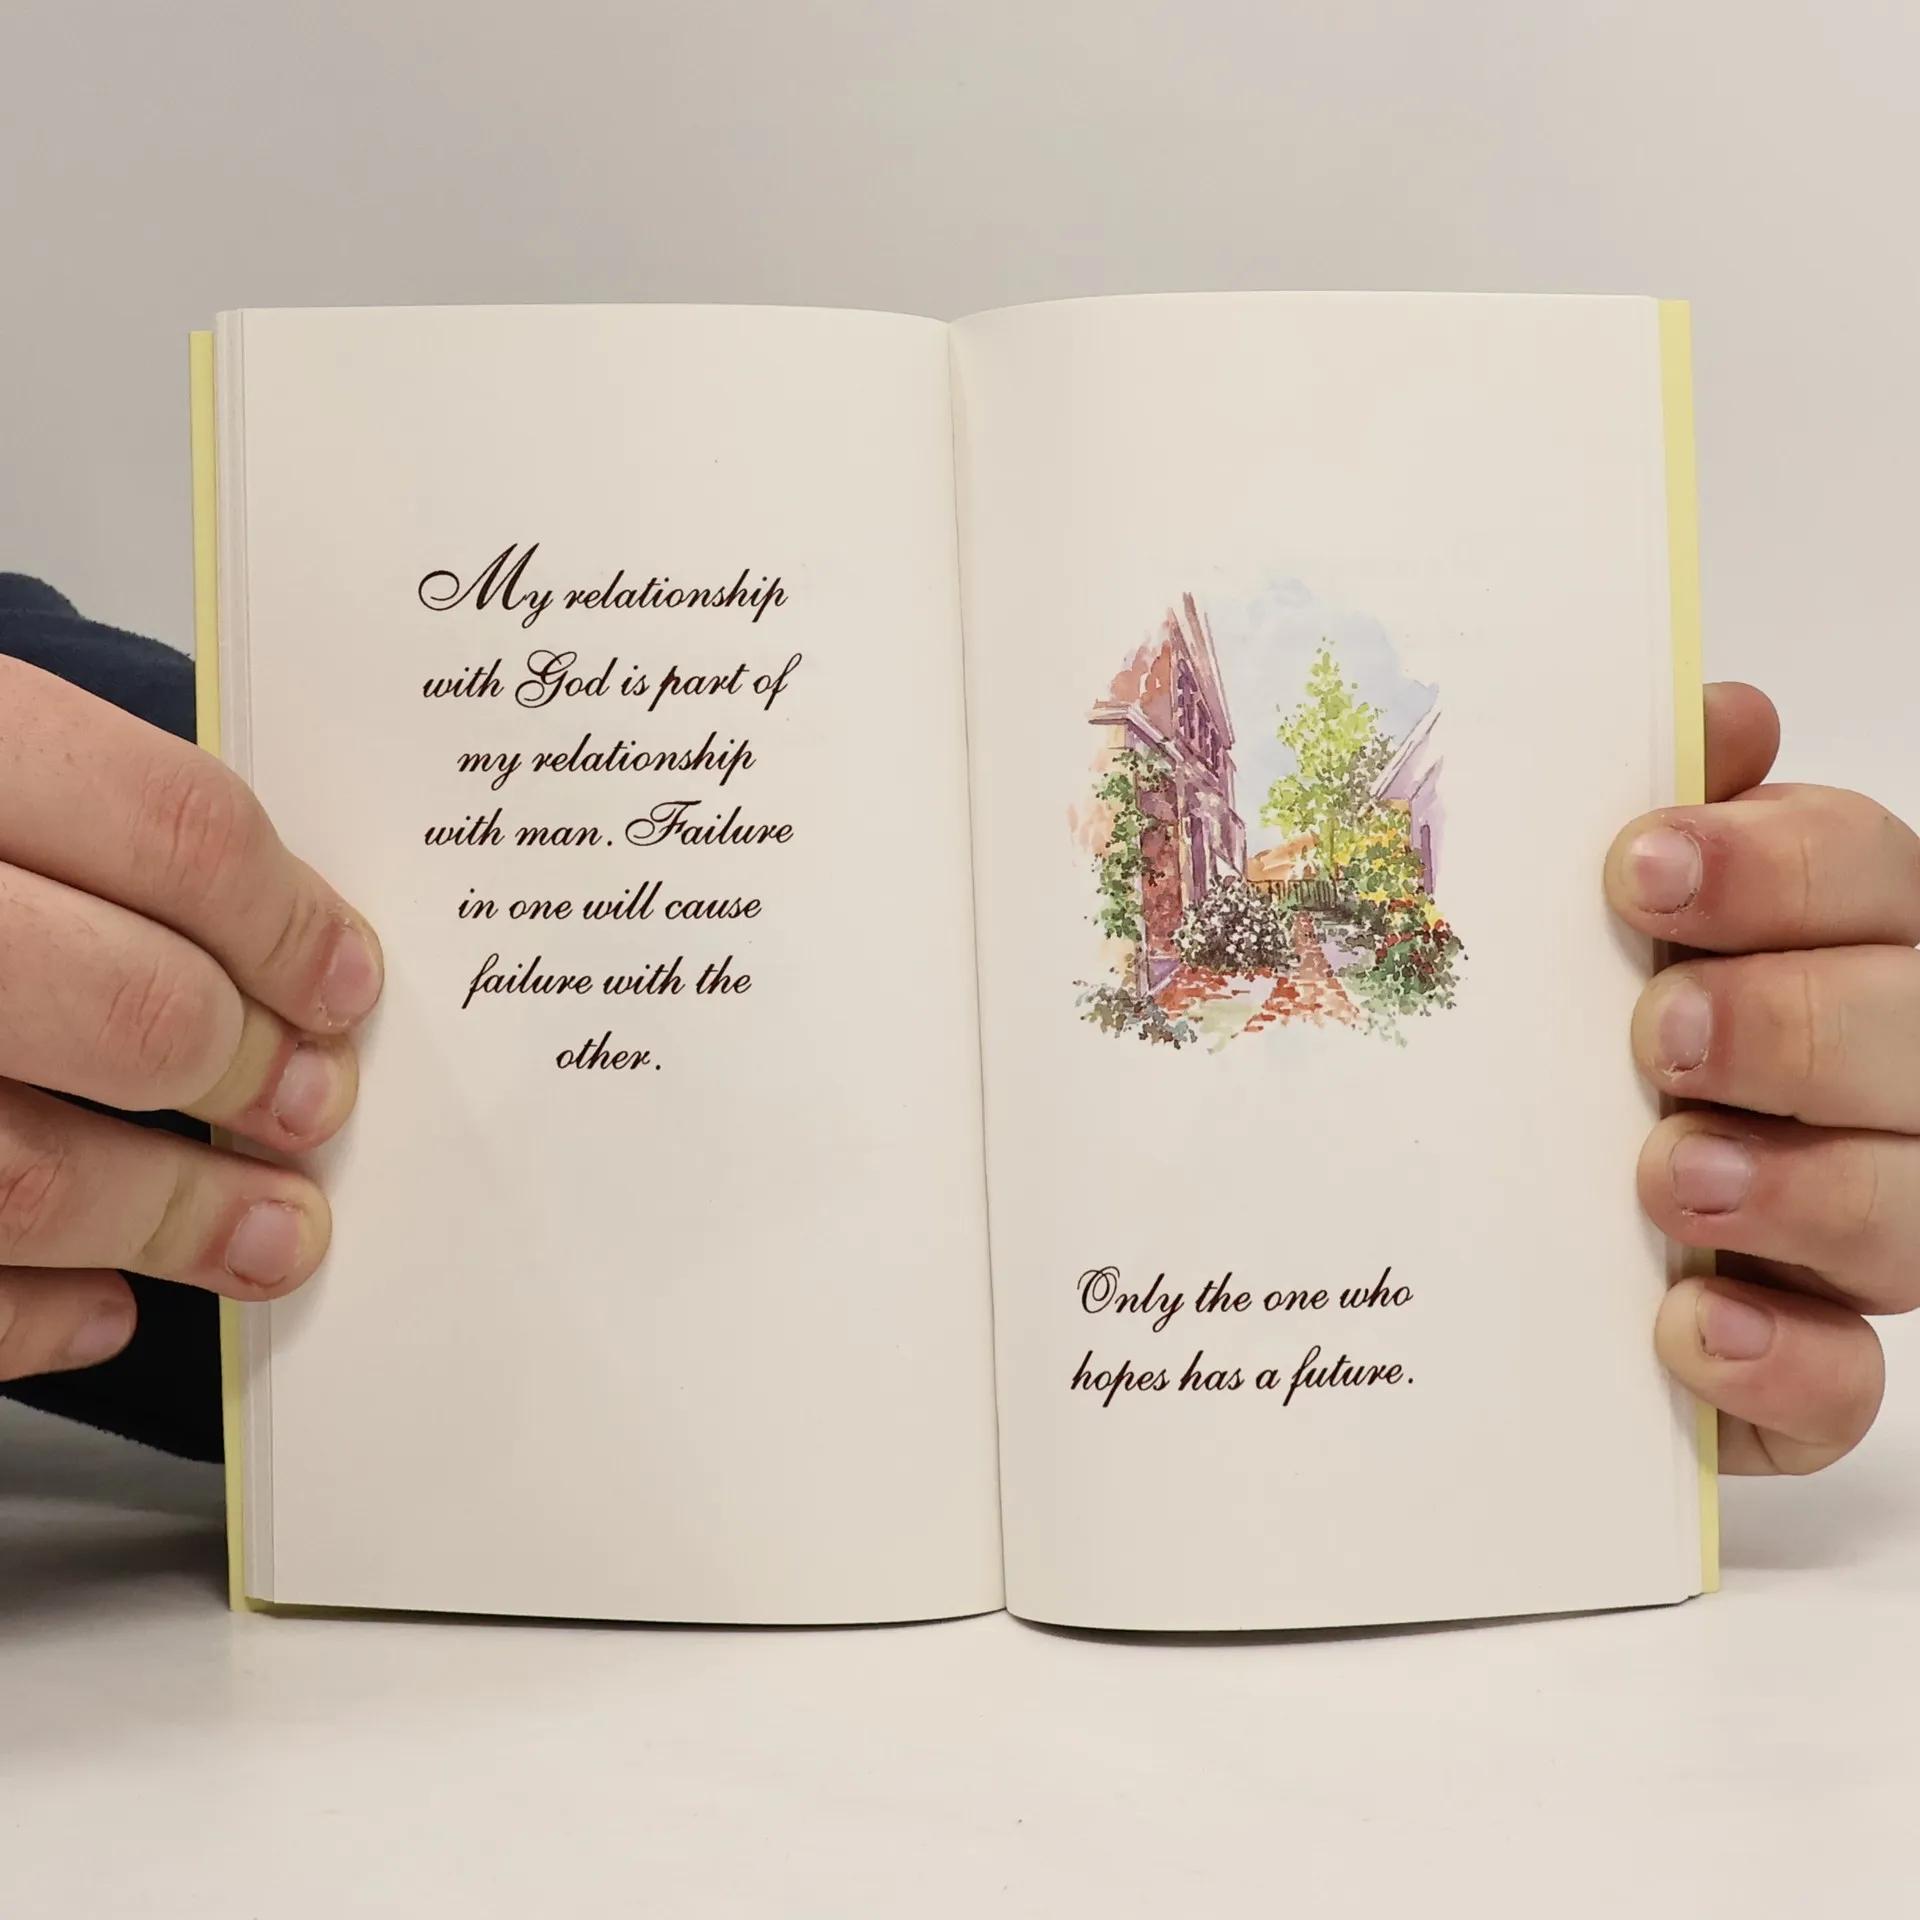 My relationship
with God is part of
my relationship
with man. Failure
in one will cause
failure with the
other.
Only the one who
hopes has a future.